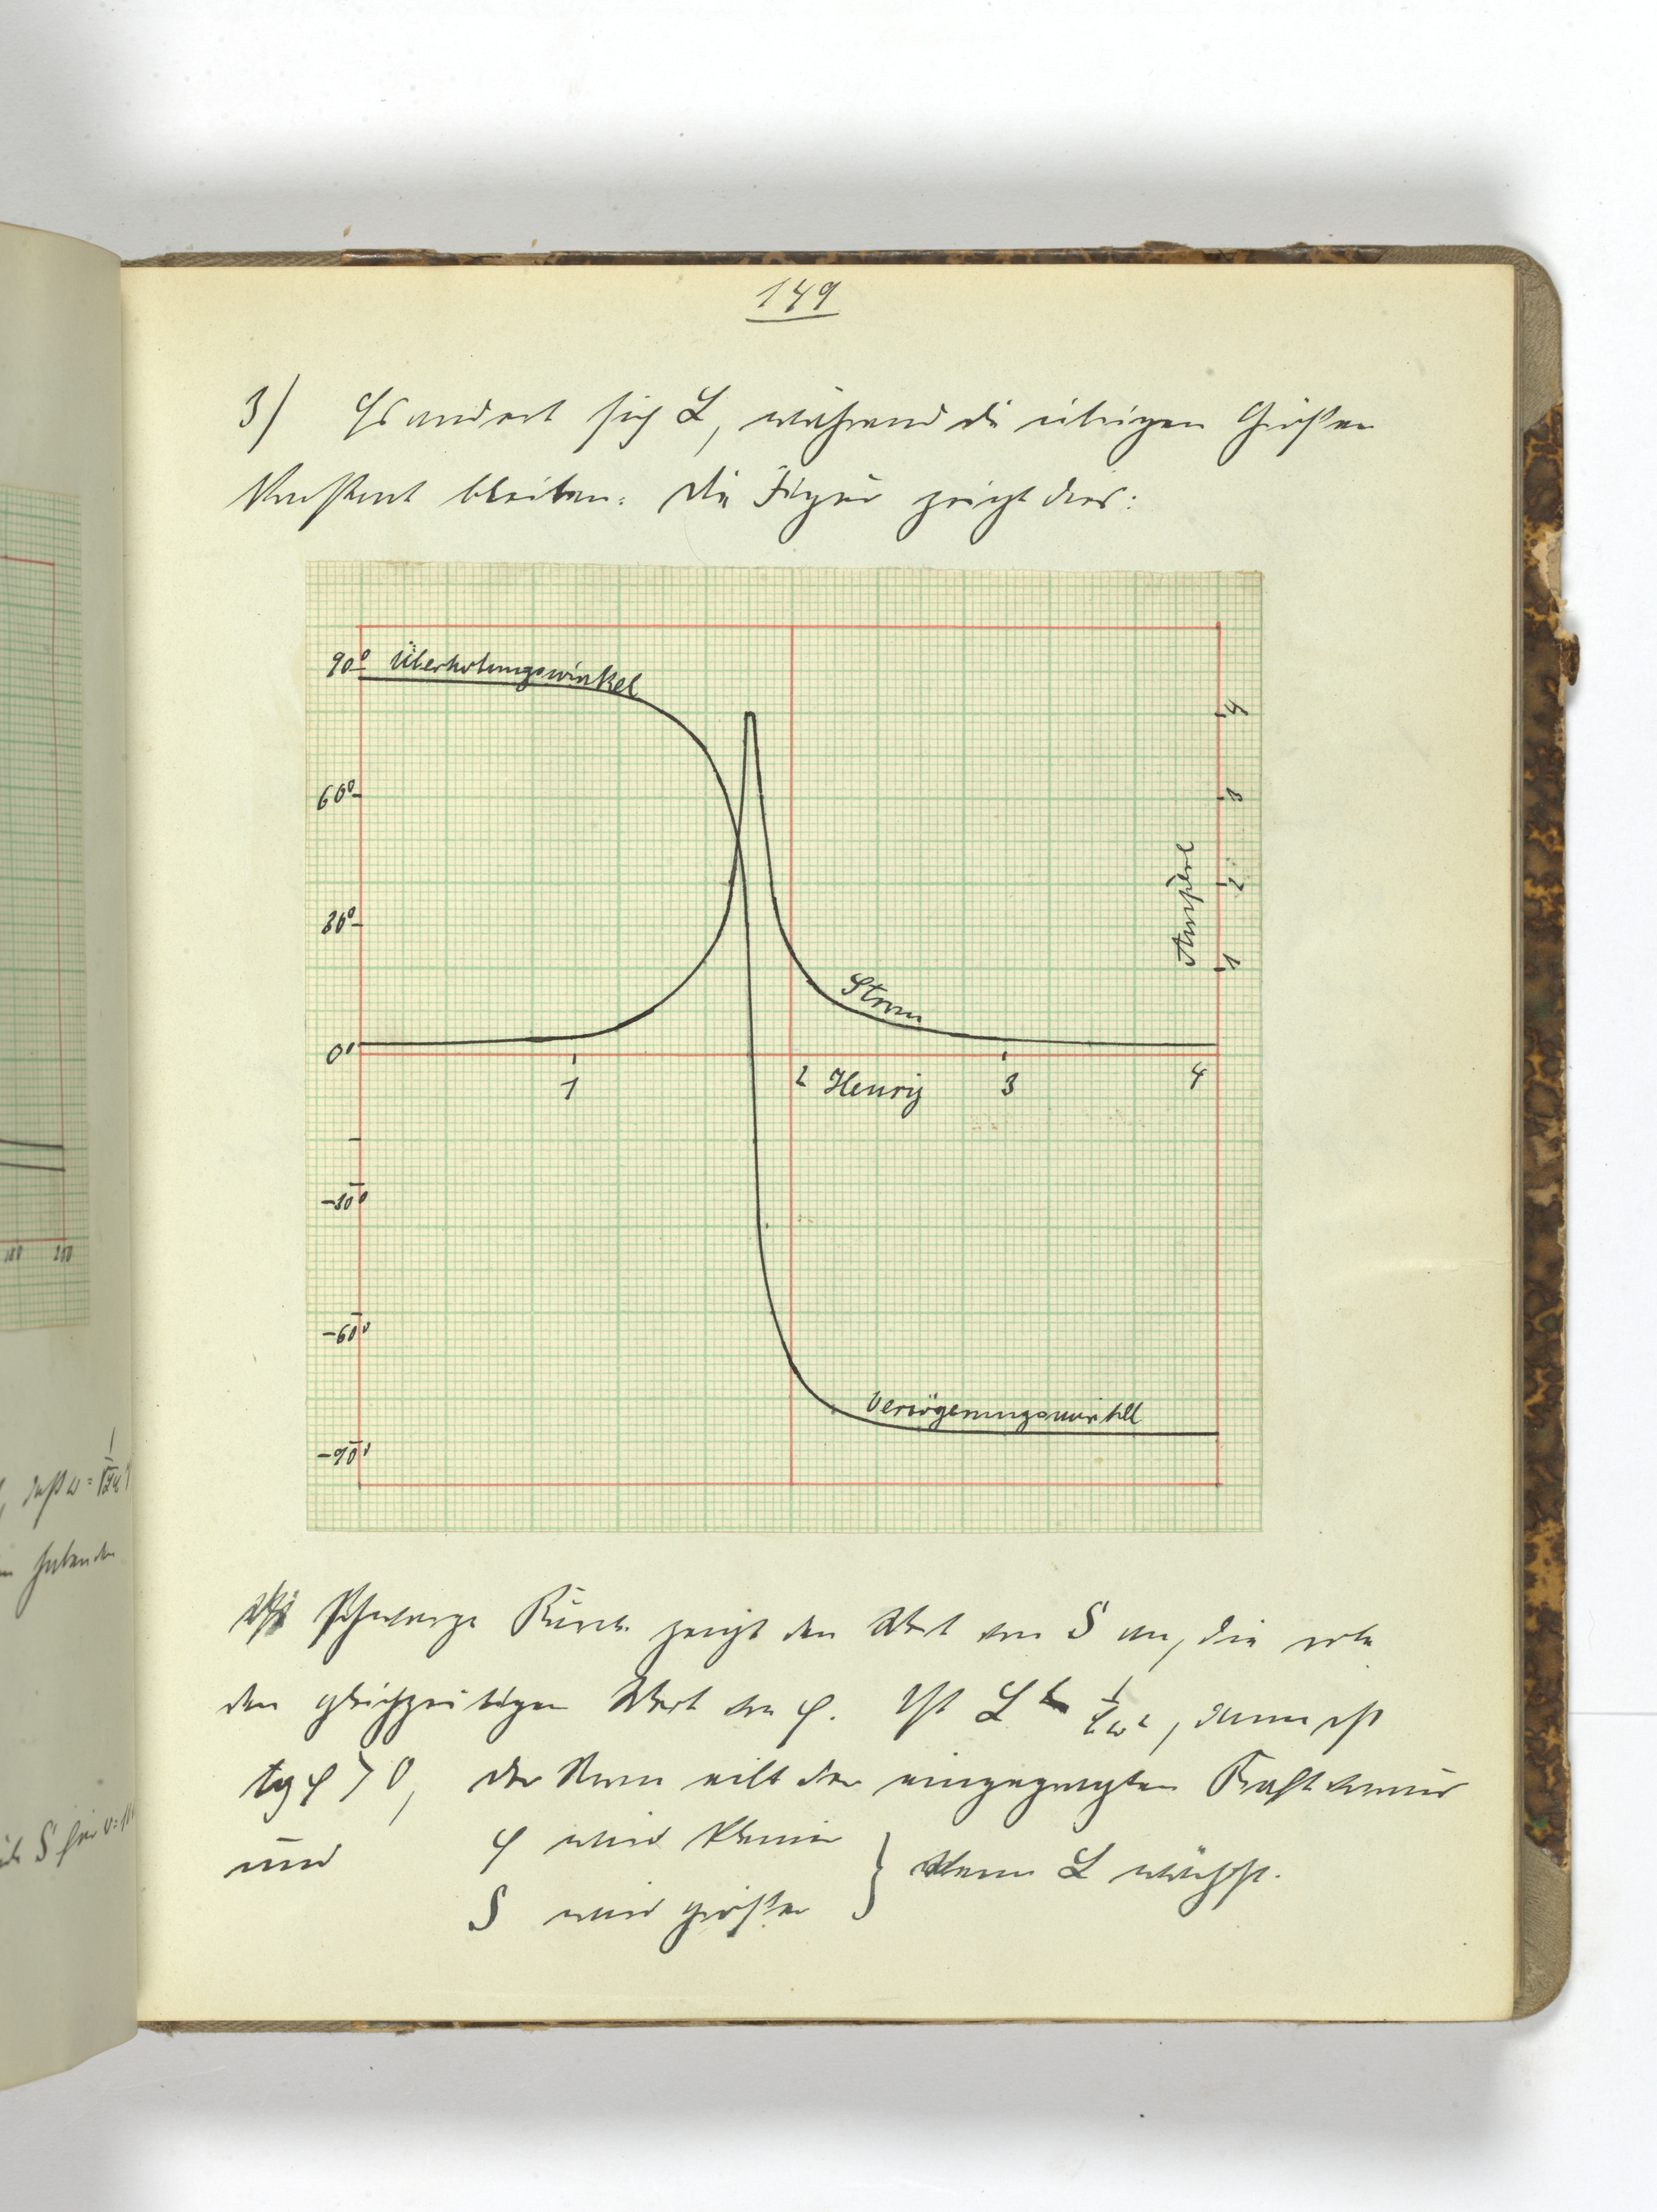 149
3) Es ändert sich L, während die übrigen Größen
konstant bleiben. Die Figur zeigt dies:
90° Überholungswinkel
4
60°
3
Ampère
2
30°
1
Strom
0°
1
2 Henry
3
4
-30°
-60°
Verzögerungswinkel
-90°
schwarze Kurve zeigt den Wert von S an, die rote
den gleichzeitigen Wert von φ. Ist L < 1/Cω², dann ist
tg φ > 0, der Strom eilt der eingeprägten Kraft voraus
und φ wird kleiner
S wird größer } wenn L wächst.
100 200
daß ω =
S für